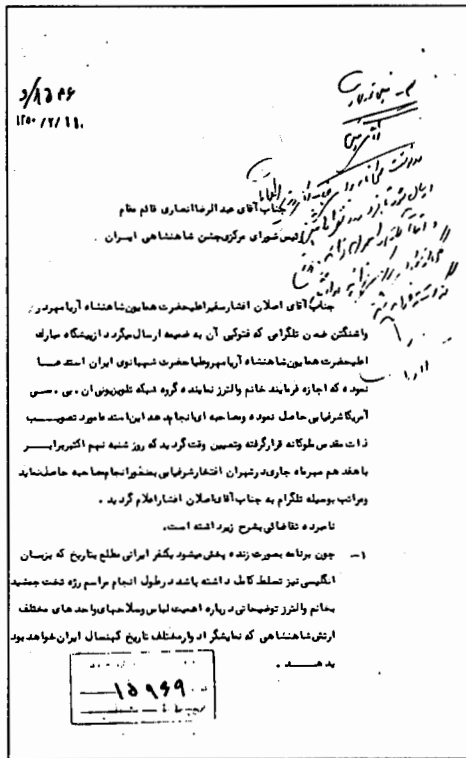 ۱۵۴۶/د
۱۳۵۰/۲/۱۱
جناب آقای عبدالرضا انصاری قائم مقام
رئیس شورای مرکزی جشن شاهنشاهی ایران .
جناب آقای اصلان افشار سفیر اعلیحضرت همایون شاهنشاه آریامهر در
واشنگتن ضمن تلگرامی که فتوکپی آن به ضمیمه ارسال میگردد از پیشگاه مبارک
اعلیحضرت همایون شاهنشاه آریامهر و علیاحضرت شهبانوی ایران استدعا
نموده که اجازه فرمایند خانم والترز نماینده گروه شبکه تلویزیونی ان . بی . سی
آمریکا شرفیابی حاصل نموده و مصاحبه ای انجام دهد این استدعا مورد تصویب
ذات مقدس ملوکانه قرار گرفته و تعیین وقت گردید که روز شنبه نهم اکتبر برابر
با هفدهم مهرماه جاری در تهران افتخار شرفیابی بمنظور انجام مصاحبه حاصل نماید
ومراتب بوسیله تلگرام به جناب آقای اصلان افشار اعلام گردید .
نامبرده تقاضائی بشرح زیر داشته است.
۱- چون برنامه بصورت زنده پخش میشود یکنفر ایرانی مطلع بتاریخ که بزبان
انگلیسی نیز تسلط کامل داشته باشد در طول انجام مراسم رژه تخت جمشید
بخانم والترز توضیحاتی درباره اهمیت لباس و سلاحهای واحد های مختلف
ارتش شاهنشاهی که نمایشگر ادوار مختلف تاریخ کهنسال ایران خواهد بود
بدهد .
۱۵۹۶۹